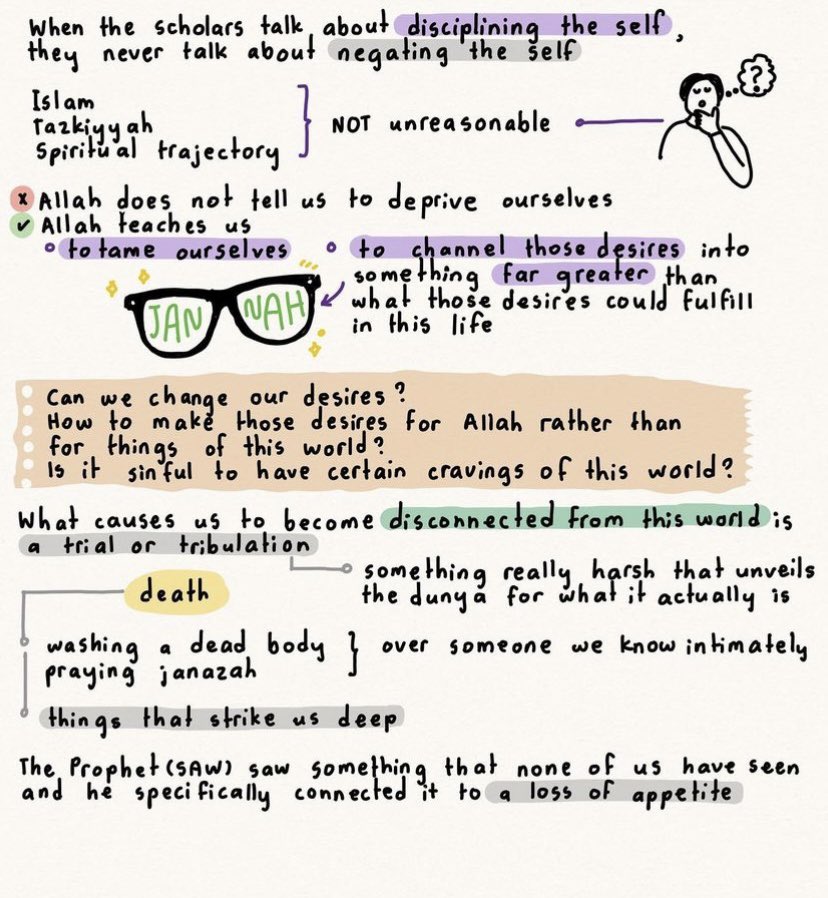 When the scholars talk about disciplining the self,
they never talk about negating the self
?
Islam
Tazkiyyah
Spiritual trajectory
NOT unreasonable
x Allah does not tell us to deprive ourselves
✓ Allah teaches us
to tame ourselves
to channel those desires into
something far greater than
what those desires could fulfill
in this life
JAN NAH
Can we change our desires?
How to make those desires for Allah rather than
for things of this world?
Is it sinful to have certain cravings of this world?
What causes us to become disconnected from this world is
a trial or tribulation
something really harsh that unveils
the dunya for what it actually is
death
washing a dead body
praying janazah
over someone we know intimately
things that strike us deep
The Prophet (SAW) saw something that none of us have seen
and he specifically connected it to a loss of appetite